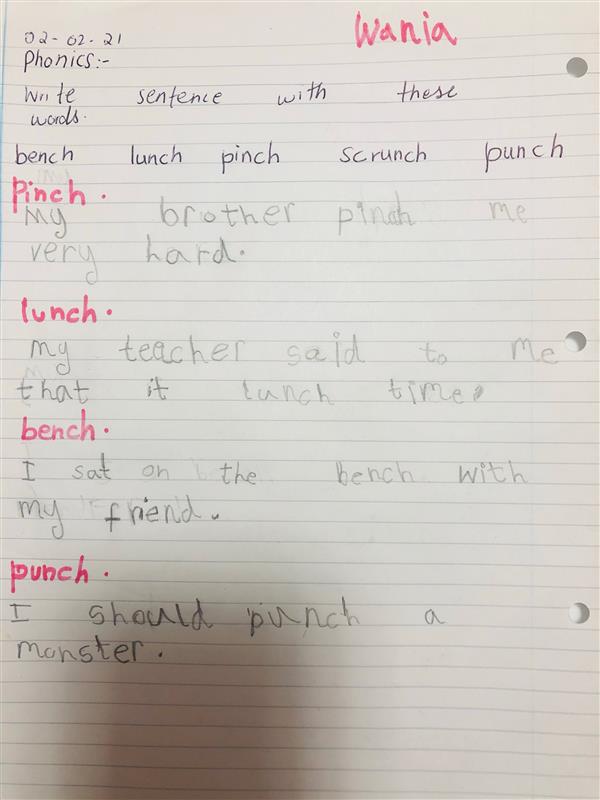 Wania
02-02-21
Phonics:-
Write sentence with these
words.
bench lunch pinch scrunch punch
Pinch.
My brother pinch me
very hard.
lunch.
my teacher said to me
that it lunch time.
bench.
I sat on the bench with
my friend.
punch.
I should punch a
monster.